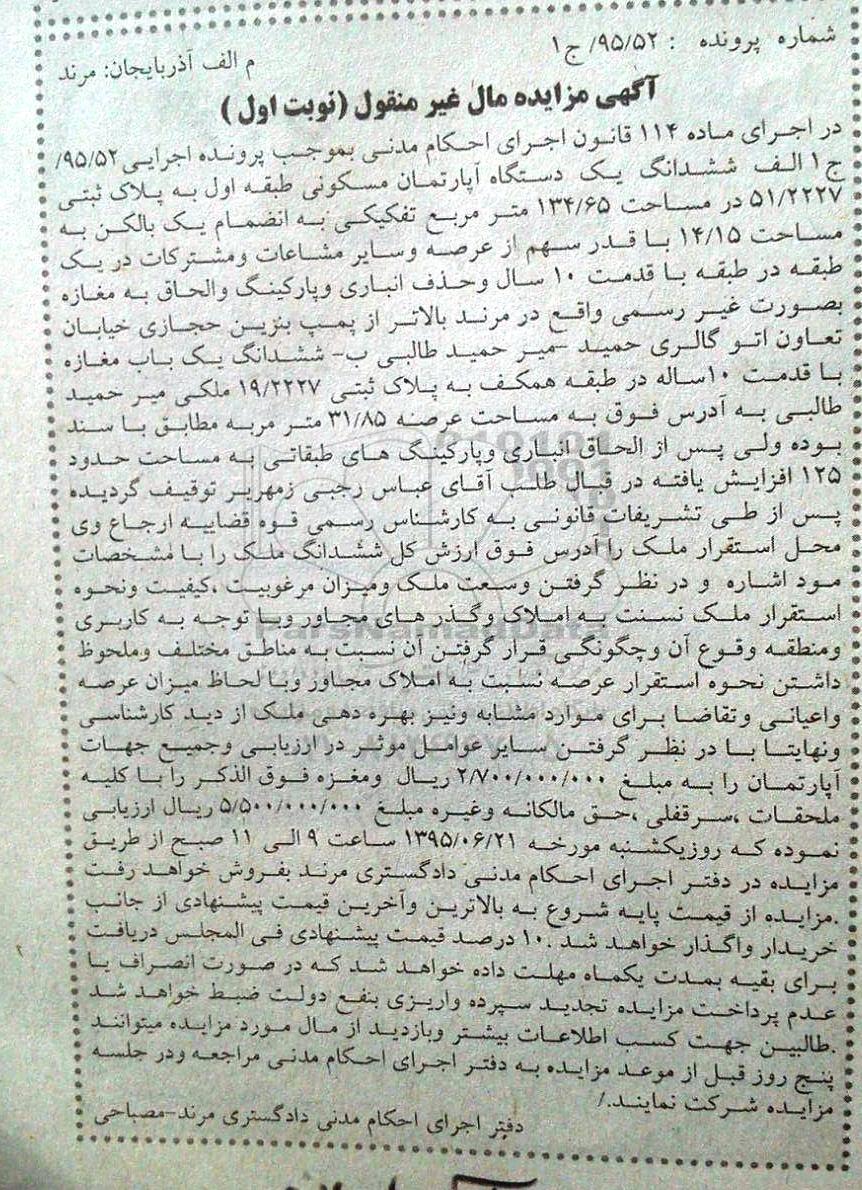 شماره پرونده : ۹۵/۵۲/ ج۱
م الف آذربایجان: مرند
آگهی مزایده مال غیر منقول (نوبت اول)
در اجرای ماده ۱۱۴ قانون اجرای احکام مدنی بموجب پرونده اجرایی ۹۵/۵۲/
ج ۱ الف ششدانگ یک دستگاه آپارتمان مسکونی طبقه اول به پلاک ثبتی
۵۱/۲۲۲۷ در مساحت ۱۳۴/۶۵ متر مربع تفکیکی به انضمام یک بالکن به
مساحت ۱۴/۱۵ با قدر سهم از عرصه وسایر مشاعات ومشترکات در یک
طبقه در طبقه با قدمت ۱۰ سال وحذف انباری وپارکینگ والحاق به مغازه
بصورت غیر رسمی واقع در مرند بالاتر از پمپ بنزین حجازی خیابان
تعاون اتو گالری حمید –میر حمید طالبی ب– ششدانگ یک باب مغازه
با قدمت ۱۰ساله در طبقه همکف به پلاک ثبتی ۱۹/۲۲۲۷ ملکی میر حمید
طالبی به آدرس فوق به مساحت عرصه ۳۱/۸۵ متر مربه مطابق با سند
بوده ولی پس از الحاق انباری وپارکینگ های طبقاتی به مساحت حدود
۱۲۵ افزایش یافته در قبال طلب آقای عباس رجبی زمهریر توقیف گردیده
پس از طی تشریفات قانونی به کارشناس رسمی قوه قضاییه ارجاع وی
محل استقرار ملک را آدرس فوق ارزش کل ششدانگ ملک را با مشخصات
مود اشاره و در نظر گرفتن وسعت ملک ومیزان مرغوبیت ،کیفیت ونحوه
استقرار ملک نسنت به املاک وگذر های مجاور وبا توجه به کاربری
ومنطقه وقوع آن وچگونگی قرار گرفتن ان نسبت به مناطق مختلف وملحوظ
داشتن نحوه استقرار عرصه نسبت به املاک مجاور وبا لحاظ میزان عرصه
واعیانی وتقاضا برای موارد مشابه ونیز بهره دهی ملک از دید کارشناسی
ونهایتا با در نظر گرفتن سایر عوامل موثر در ارزیابی وجمیع جهات
آپارتمان را به مبلغ ۲/۷۰۰/۰۰۰/۰۰۰ ریال ومغزه فوق الذکر را با کلیه
ملحقات ،سرقفلی ،حق مالکانه وغیره مبلغ ۵/۵۰۰/۰۰۰/۰۰۰ ریال ارزیابی
نموده که روزیکشنبه مورخه ۱۳۹۵/۰۶/۲۱ ساعت ۹ الی ۱۱ صبح از طریق
مزایده در دفتر اجرای احکام مدنی دادگستری مرند بفروش خواهد رفت
.مزایده از قیمت پایه شروع به بالاترین وآخرین قیمت پیشنهادی از جانب
خریدار واگذار خواهد شد .۱۰ درصد قیمت پیشنهادی فی المجلس دریافت
برای بقیه بمدت یکماه مهلت داده خواهد شد که در صورت انصراف یا
عدم پرداخت مزایده تجدید سپرده واریزی بنفع دولت ضبط خواهد شد
.طالبین جهت کسب اطلاعات بیشتر وبازدید از مال مورد مزایده میتوانند
پنج روز قبل از موعد مزایده به دفتر اجرای احکام مدنی مراجعه ودر جلسه
مزایده شرکت نمایند./
دفتر اجرای احکام مدنی دادگستری مرند–مصباحی
ParsNamadData